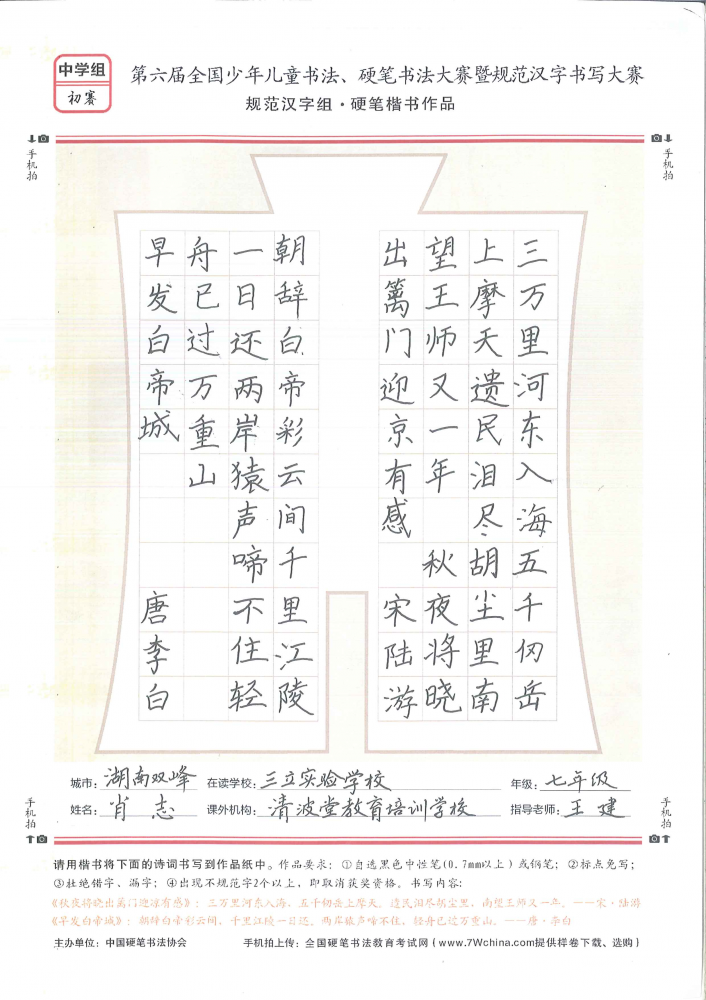 中学组
初赛
第六届全国少年儿童书法、硬笔书法大赛暨规范汉字书写大赛
规范汉字组·硬笔楷书作品
手机拍
手机拍
三万里河东入海五千仞岳
上摩天遗民泪尽胡尘里南
望王师又一年 秋夜将晓
出篱门迎京有感 宋陆游
朝辞白帝彩云间千里江陵
一日还两岸猿声啼不住轻
舟已过万重山
早发白帝城 唐李白
城市：湖南双峰 在读学校：三立实验学校 年级：七年级
姓名：肖志 课外机构：清波堂教育培训学校 指导老师：王建
手机拍
手机拍
请用楷书将下面的诗词书写到作品纸中。作品要求：①自选黑色中性笔(0.7mm以上)或钢笔；②标点免写；
③杜绝错字、漏字；④出现不规范字2个以上，即取消获奖资格。书写内容：
《秋夜将晓出篱门迎凉有感》：三万里河东入海，五千仞岳上摩天。遗民泪尽胡尘里，南望王师又一年。——宋·陆游
《早发白帝城》：朝辞白帝彩云间，千里江陵一日还。两岸猿声啼不住，轻舟已过万重山。——唐·李白
主办单位：中国硬笔书法协会 手机拍上传：全国硬笔书法教育考试网（www.7Wchina.com提供样卷下载、选购）